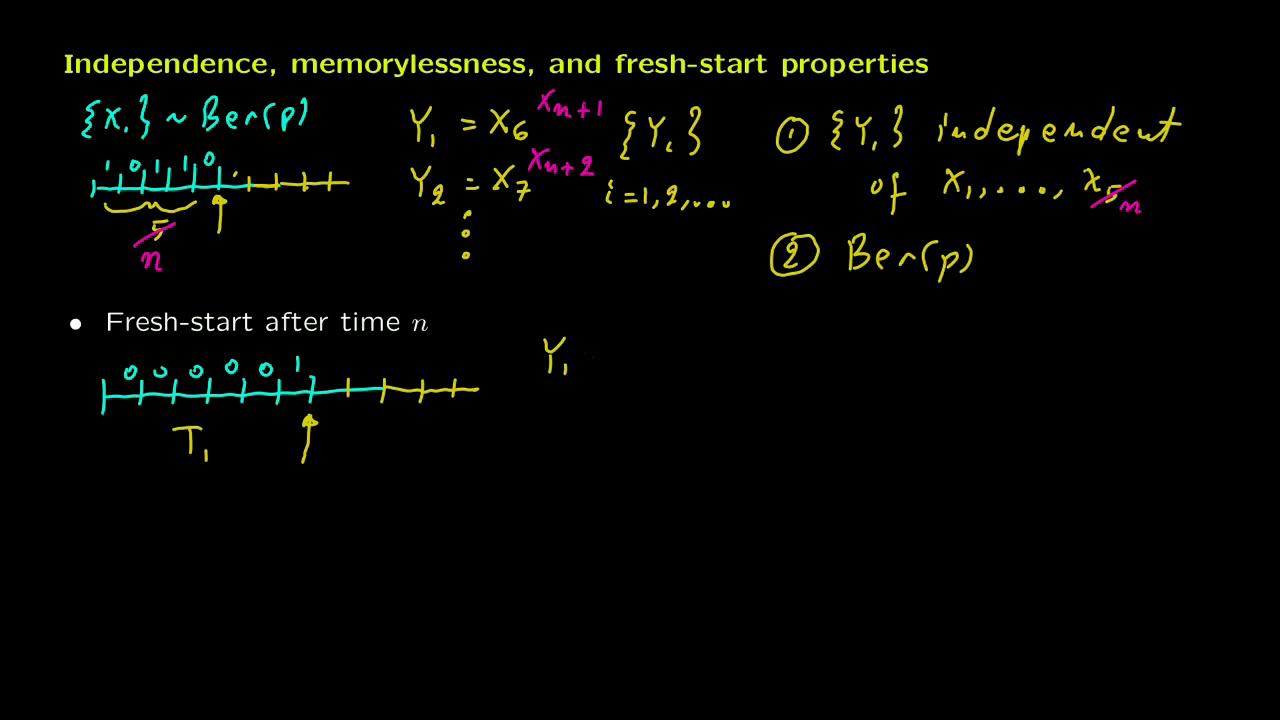 Independence, memorylessness, and fresh-start properties
{X_i} ~ Ber(p)
1 0 1 1 0
5
n
Y_1 = X_6 X_{n+1}
Y_2 = X_7 X_{n+2}
{Y_i}
i = 1, 2, ...
① {Y_i} independent
of X_1, ..., X_5 n
② Ber(p)
• Fresh-start after time n
0 0 0 0 0 1
T_1
Y_1